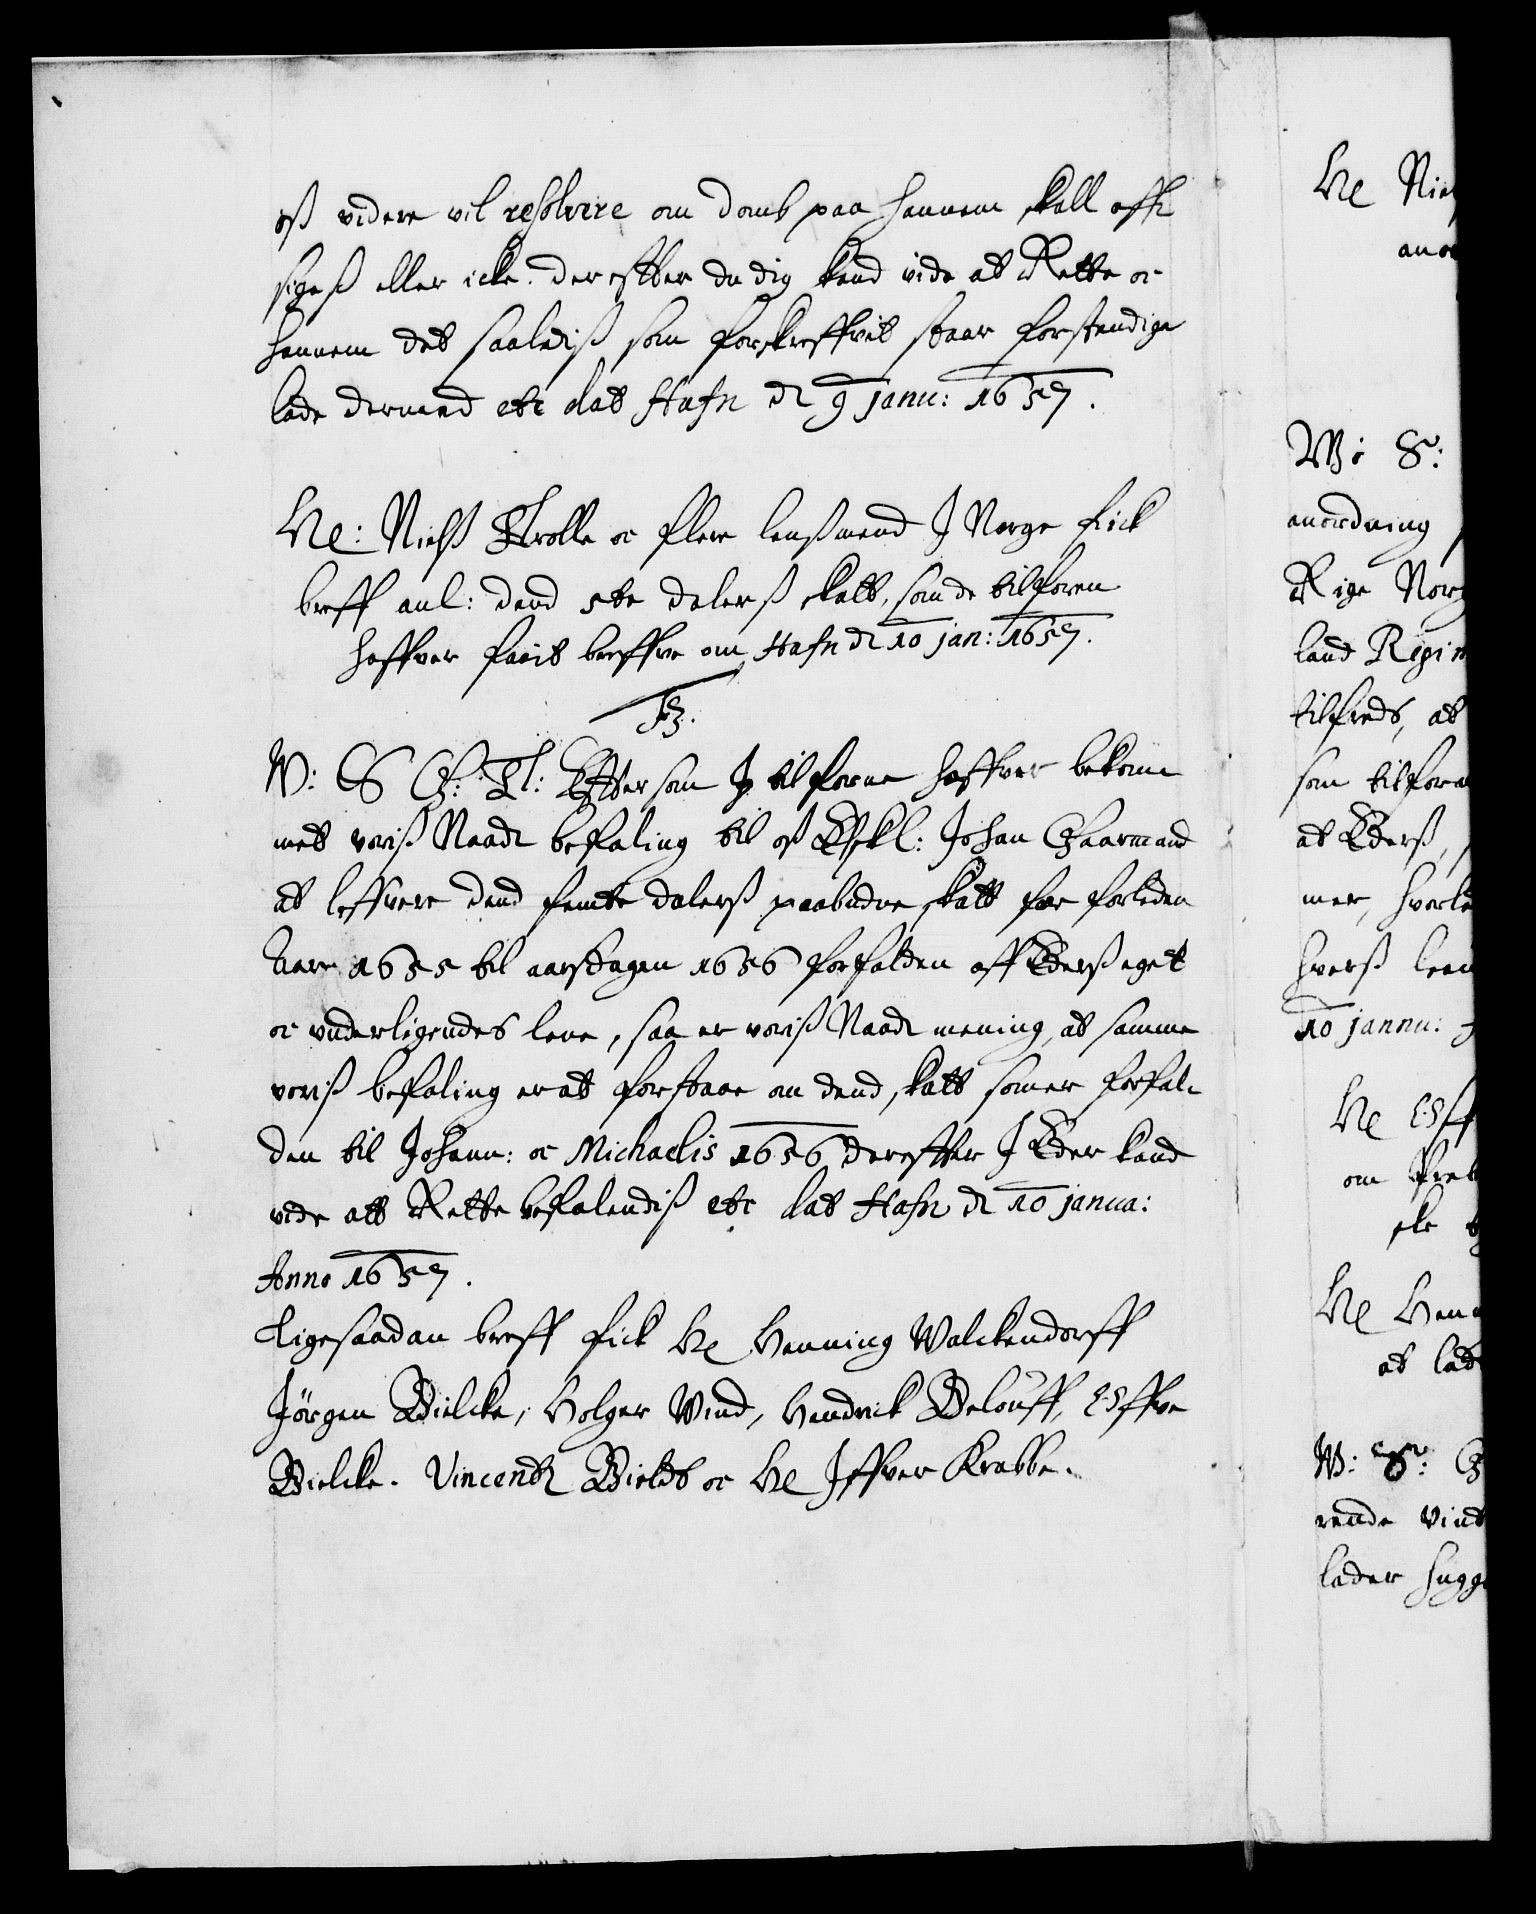 oß videre vil resolvere om domb paa hannem skall aff¬
sigeß eller icke. der effter du dig kand vide at Rette oc
hannem det saaledis som forskreffvit staar forstendige
lade dermed etc dat Hafn dl 9 janu: 1657.
He: Nielß Trolle oc flere lenßmend J Norge fick
breff anl: dend 5te dalerß skatt, som de tilforen
haffver faait breffve om Hafn dl 10 jan: 1657.
W: S G: T: Effter som J tilforne haffver bekom¬
met voriß Naadl befaling til oß Elskl: Johan Gaarmand
at leffvere dend femte dalerß paabudne skatt for forleden
Aar 1655 til aarsdagen 1656 forfalden aff Ederß eget
oc underligendes lene, saa er voriß Naadl mening, at samme
voriß befaling er at forstaae om dend skatt som er forfal¬
den til Johann: oc Michaelis 1656 dereffter J Eder kand
vide att Rette befalendiß etc dat Hafn dl 10 janua:
Anno 1657.
Ligesaadan breff fick He Henning Walckendorff
Jörgen Bielcke, Holger Wind, Hendrick Belouff, Offve
Bielcke. Vincentz Bieldt oc He Jffver Krabbe.
He
W: S:
anordning
Rige
land
tilfreds, at
som
at Ederß,
mer,
hverß
10 jannu:
He
om
He
at
W: S:
rende
lader